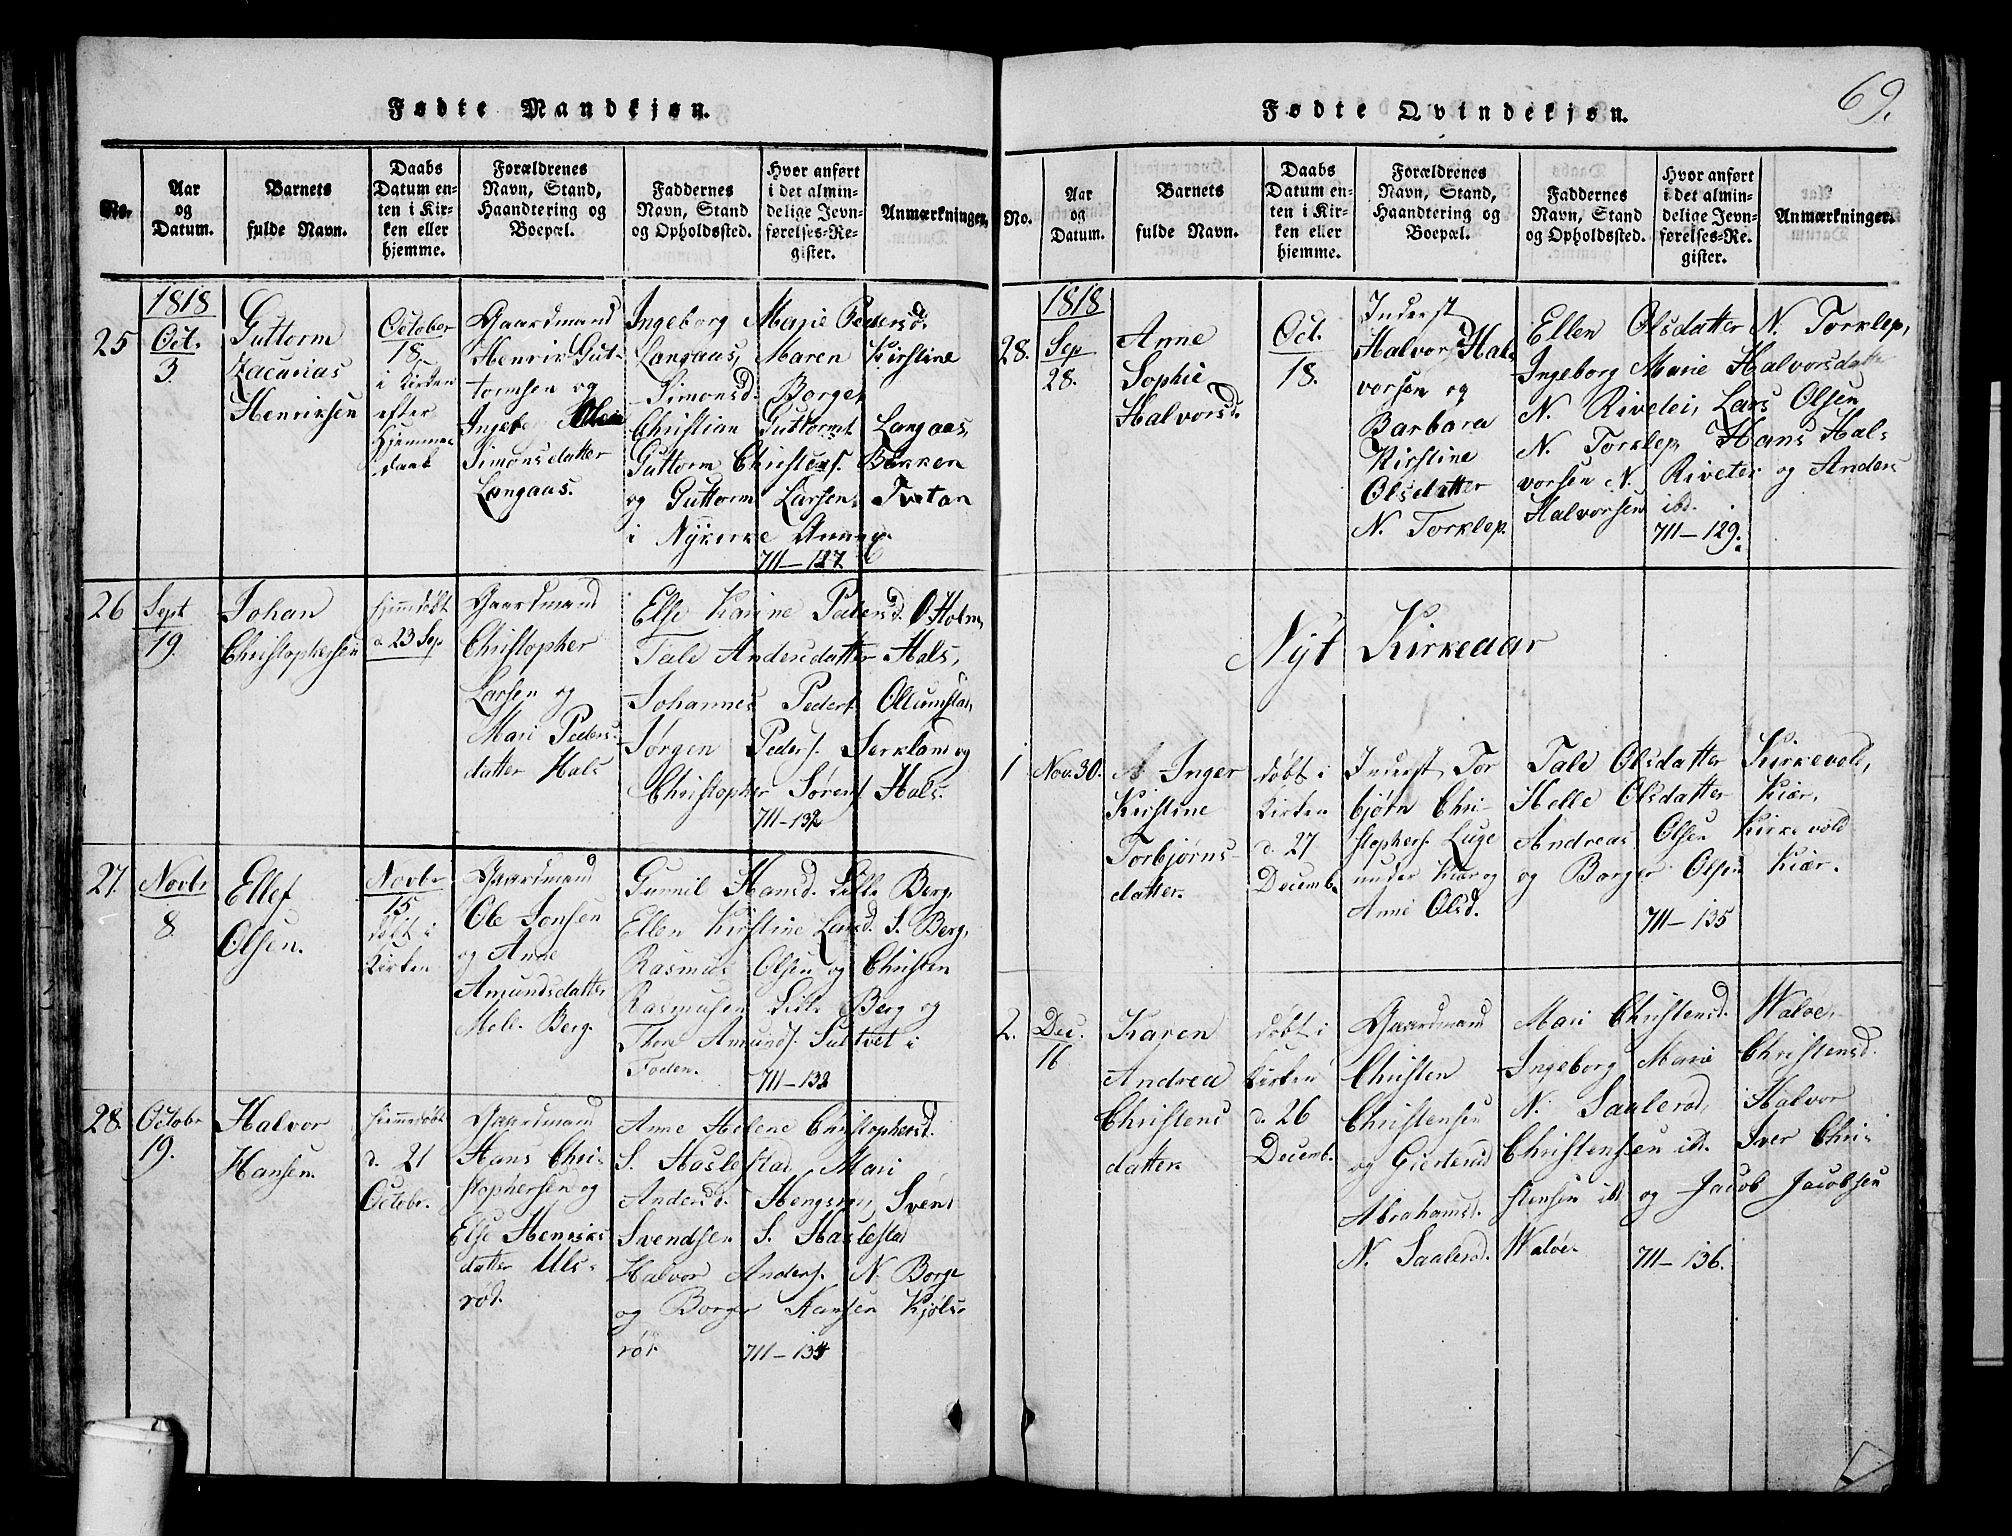 Fødte Mandkjøn.
No.
Aar
og
Datum.
Barnets
fulde Navn.
Daabs
Datum en-
ten i Kir-
ken eller
hjemme.
Forældrenes
Navn, Stand,
Haandtering og
Boepæl.
Faddernes
Navn, Stand
og Opholdssted.
Hvor anført
i det almin-
delige Jevn-
førelses-Re-
gister.
Anmærkninger.
25
1818
Oct.
3.
Guttorm
Zacarias
Henriksen
October
18.
i Kirken
efter
Hjemme
daab
Gaardmand
Henrik Gut-
tormsen og
Ingebor
Simonsdatter
Langaas.
Ingeborg Marie Pedersd.
Langaas, Maren Kirstine
Simonsd. Borge,
Christian Guttorms. Langaas,
Guttorm Christens. Bakken
og Guttorm Larsen Tvetan
i Nykirke Annex.
711-127
26
Sept
19.
Johan
Christophersen
hjemdøbt
a 23 Sep.
Gaardmand
Christopher
Larsen og
Mari Peders-
datter Hals
Else Karine Pedersd. Holm,
Tale Andersdatter Hals,
Johannes Peders. Ollumstad,
Jørgen Peders. Serkland og
Christopher Sørens. Hals.
711-132
27.
Novbr
8.
Ellef
Olsen.
Novbr
15
døbt i
Kirken
Gaardmand
Ole Jonsen
og Anne
Amundsdatter
Mel. Berg.
Gunnil Hansd. Lille Berg,
Ellen Kirstine Larsd. S. Berg,
Rasmus Olsen og Christen
Rasmusen Lille Berg og
Thor Amunds. Sultvet i
Foden.
711-132
28.
October
19.
Halvor
Hansen.
hjemmedøbt
d. 21
Octobr.
Gaardmand
Hans Chri-
stophersen og
Else Henriks
datter Uls-
rød.
Anne Helene Christophersd.
S. Haslestad, Mari
Andersd. Hengsrøn, Svend
Svendsen S. Haslestad
Halvor Anders. N. Borge
og Borger Hansen Kjøls-
rør.
711-134
69.
Fødte Qvindekjøn.
No.
Aar
og
Datum.
Barnets
fulde Navn.
Daabs
Datum en-
ten i Kir-
ken eller
hjemme.
Forældrenes
Navn, Stand,
Haandtering og
Boepæl.
Faddernes
Navn, Stand
og Opholdssted.
Hvor anført
i det almin-
delige Jevn-
førelses-Re-
gister.
Anmærkninger.
28.
1818
Sep
28.
Anne
Sophie
Halvorsd.
Oct.
18.
Inderst
Halvor Hal-
vorsen og
Barbara
Kirstine
Olsdatter
N. Torklep.
Ellen Olsdatter N. Torklep,
Ingeborg Marie Halvorsdatter
N. Rivetei, Lars Olsen
N. Torklep, Hans Hal-
vorsen N. Rivetei og Anders
Halvorsen ibd.
711-129.
Nyt Kirkeaar
1
Nov. 30.
Inger
Kirstine
Torbjørns-
datter.
døbt i
Kirken
d. 27
Decemb.
Inderst Tor
bjørn Chri-
stophers. Luge
under Kiær og
Anne Olsd.
Tale Olsdatter Kirkevold,
Helle Olsdatter Kiær,
Andreas Olsen Kirkevold
og Borger Olsen Kiær.
711-135
2.
Dec.
16
Karen
Andrea
Christens
datter
døbt i
Kirken
d. 26
Decemb.
Gaardmand
Christen
Christensen
og Giertrud
Abrahamsd.
N. Saalerød.
Mari Christensd. Waløe,
Ingeborg Marie Christensd.
N. Saalerød, Halvor
Christensen ibd. Iver Chri-
stensen ibd og Jacob Jacobsen
Waløe.
711-136.